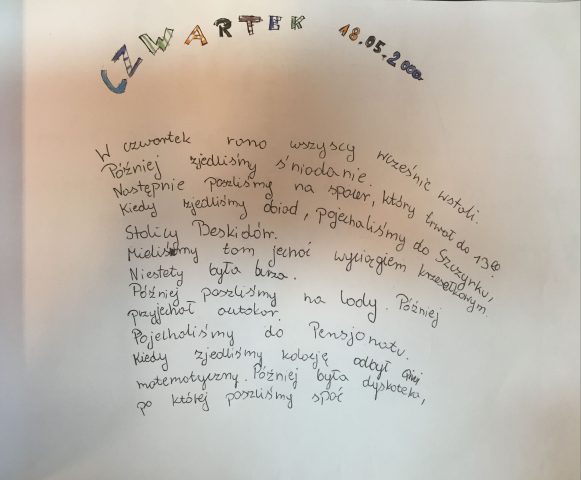 CZWARTEK 18.05.2000r.
W czwartek rano wszyscy wcześnie wstali.
Później zjedliśmy śniadanie.
Następnie poszliśmy na spacer, który trwał do 13⁰⁰
Kiedy zjedliśmy obiad, pojechaliśmy do Szczyrku,
Stolicy Beskidów.
Mieliśmy tam jechać wyciągiem krzesełkowym.
Niestety była burza.
Później poszliśmy na lody. Później
przyjechał autokar.
Pojechaliśmy do Pensjonatu.
Kiedy zjedliśmy kolację odbył się
matematyczny. Później była dyskoteka,
po której poszliśmy spać